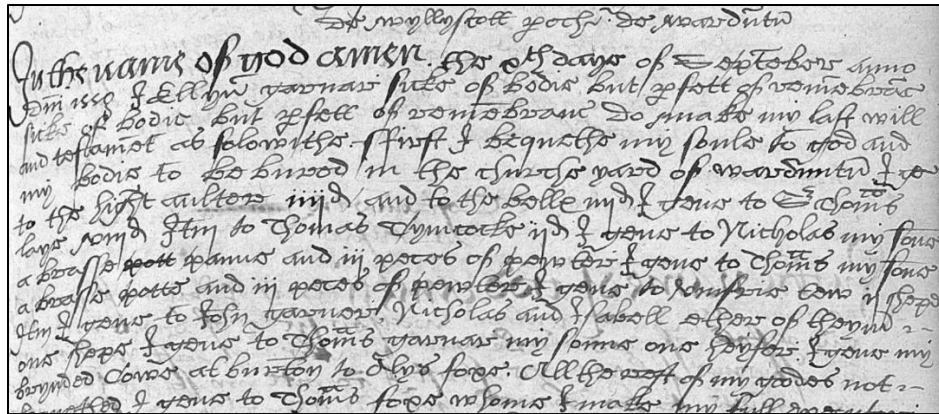 de Wyllyscott poche de Wardutu
In the name of god amen. the xth daye of September anno
dni 1558 I Ellyn Garnar sicke of bodie but pfett of remebrac
sicke of bodie but pfett of remebrauc do make my last will
and testamet as folowithe ffirst I bequethe my soule to god and
my bodie to be bured in the churche yard of wardutu I ge
to the hight aulter iiijd and to the belle iiijd I geue to Sr Thoms
laye xiijd Itm to Thomas Tymcocke ijd I geue to Nicholas my sone
a brasse pott panne and iij peces of pewter I geue to Thoms my sone
a brasse potte and iij peces of pewter I geue to Umfrie tew ij shepe
Itm I geue to John Garner, Nicholas and Isabell ether of theym
one shepe I geue to Thoms garnar my sonne one heyfer I geue my
brynded Cowe at burton to Alys foxe. All the rest of my godes not
bequethed I geue to Thoms foxe whome I make my full